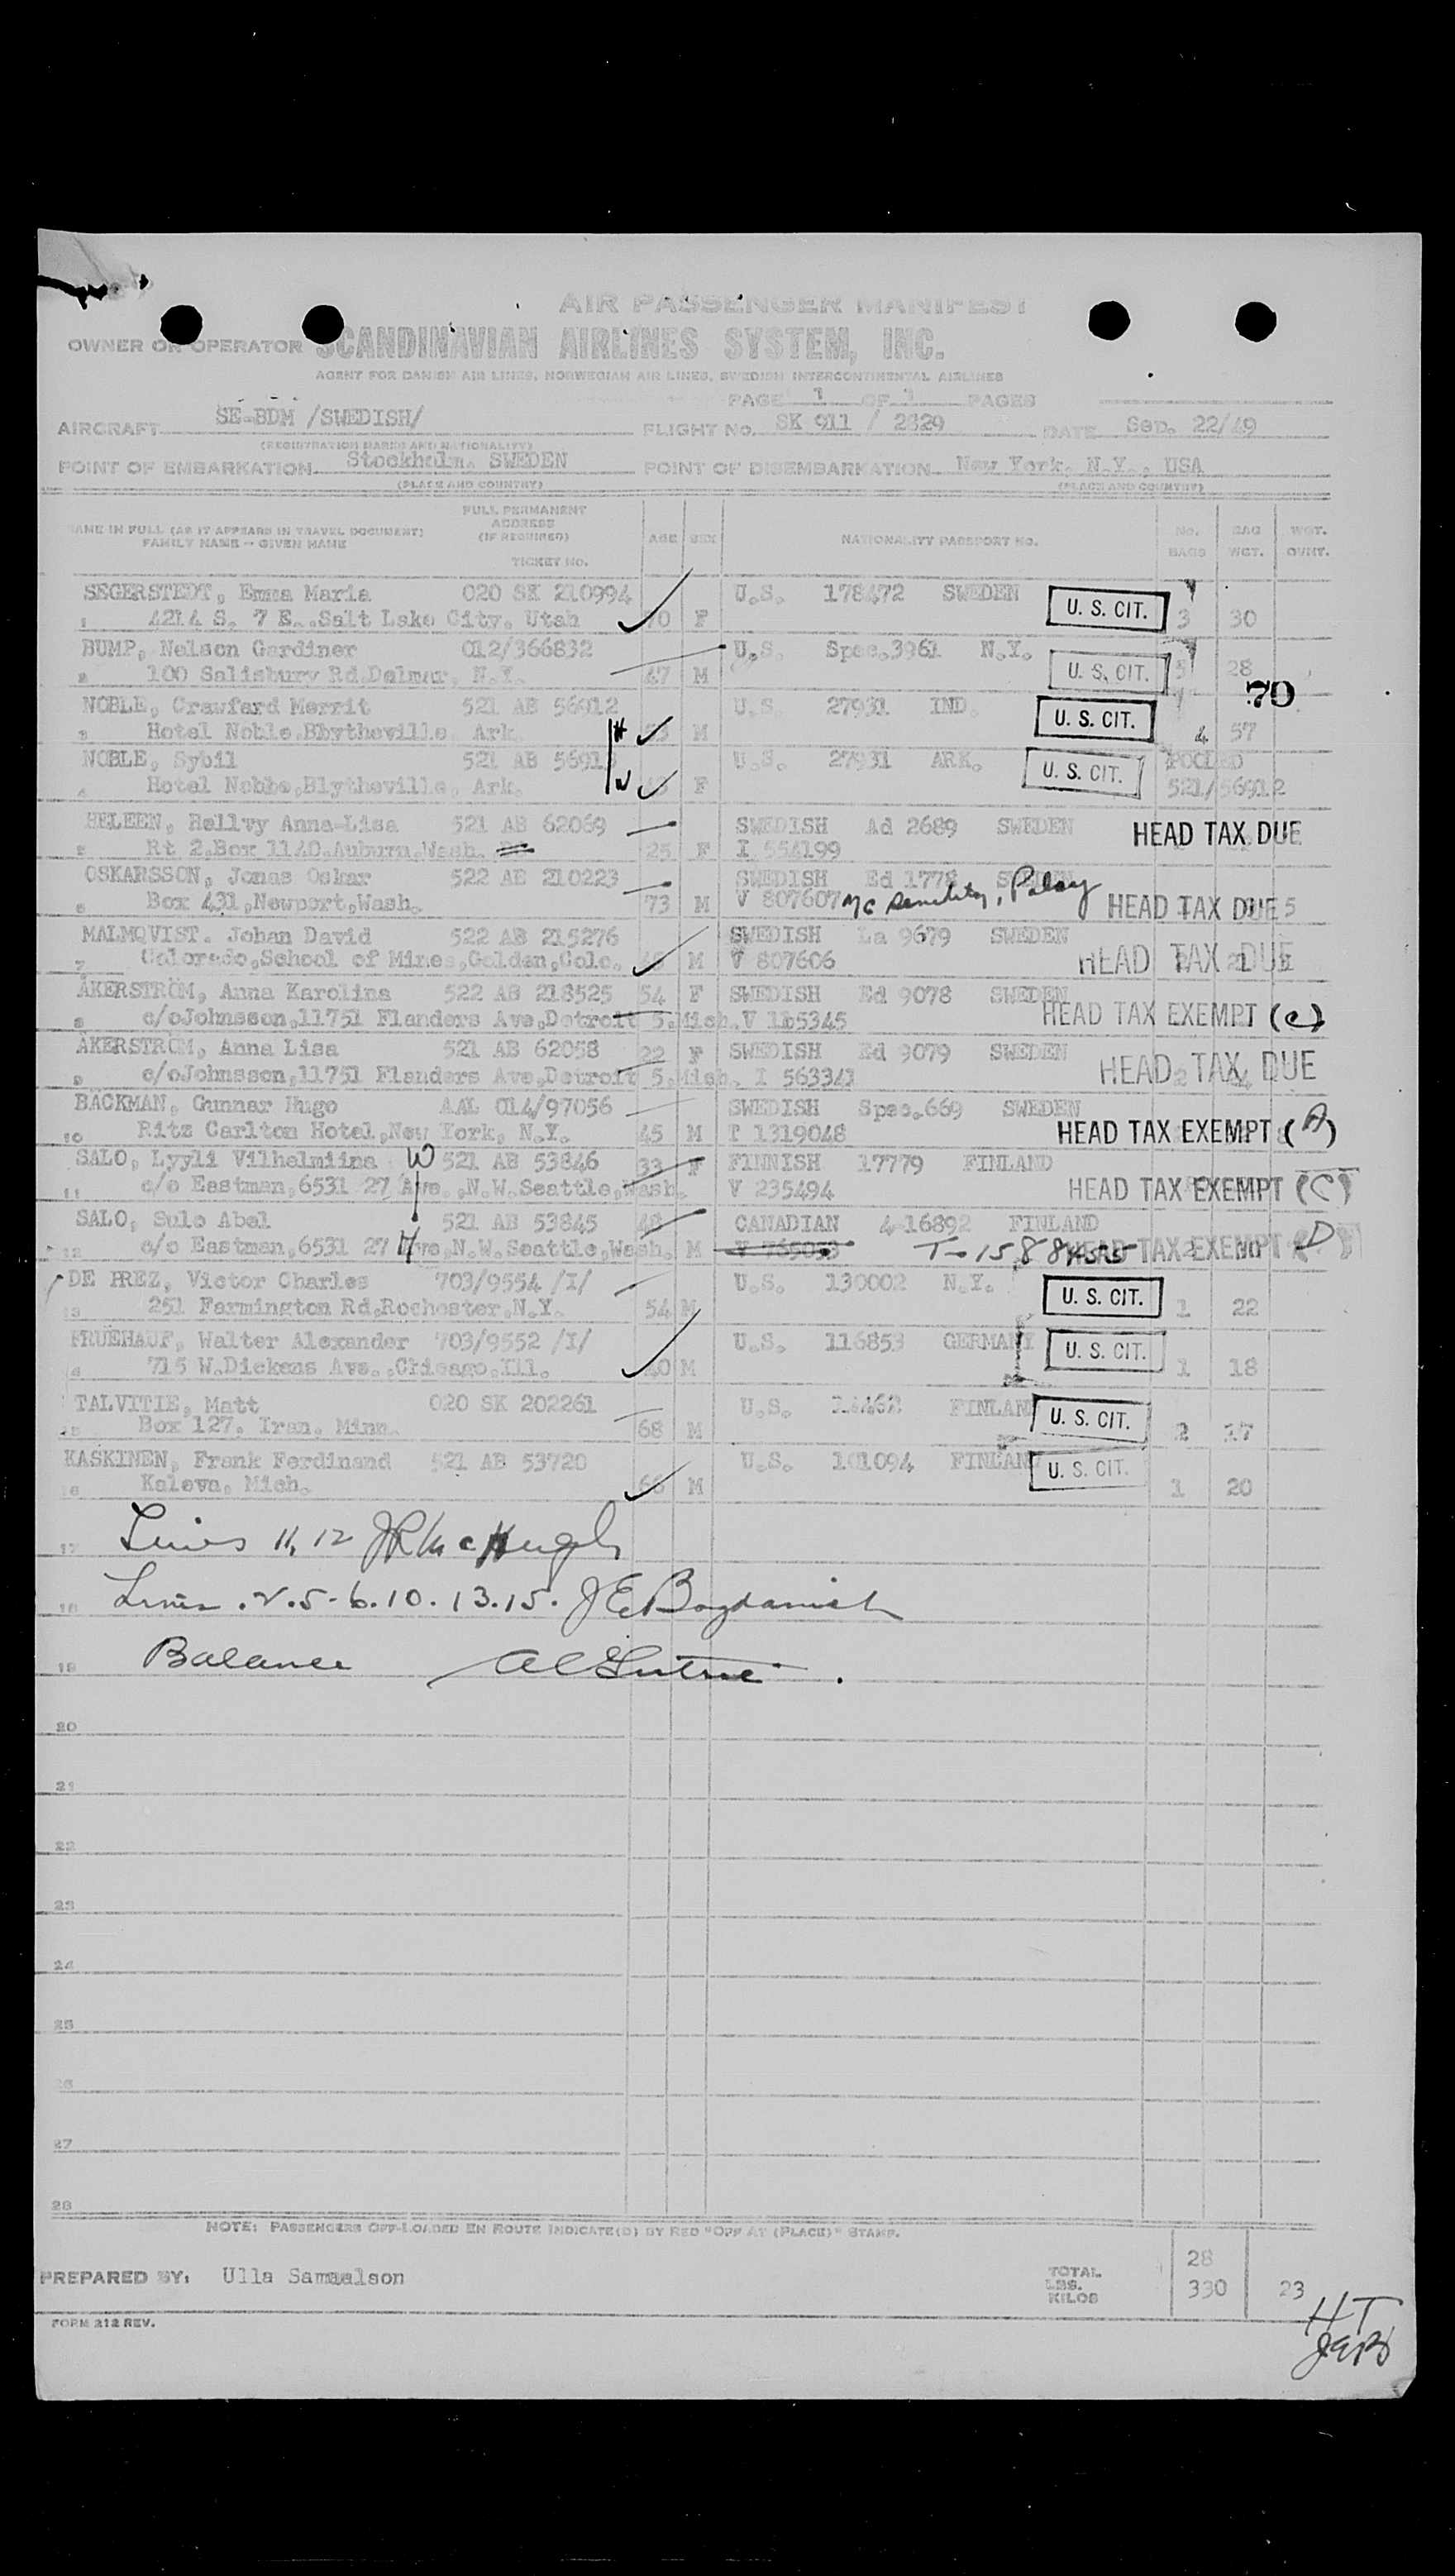 AIR PASSENGER MANIFEST
OWNER OR OPERATOR SCANDINAVIAN AIRLINES SYSTEM, INC.
AGENT FOR DANISH AIR LINES, NORWEGIAN AIR LINES, SWEDISH INTERCONTINENTAL AIRLINES
PAGE 1 OF 1 PAGES
AIRCRAFT SE-BDM /SWEDISH/ FLIGHT No. SK 911 / 2329 DATE Sep. 22/49
(REGISTRATION MARKS AND NATIONALITY)
POINT OF EMBARKATION Stockholm, SWEDEN POINT OF DISEMBARKATION New York, N.Y., USA
(PLACE AND COUNTRY) (PLACE AND COUNTRY)
NAME IN FULL (AS IT APPEARS IN TRAVEL DOCUMENT) FULL PERMANENT ADDRESS (IF REQUIRED) AGE SEX NATIONALITY PASSPORT NO. No. BAGS BAG WGT. WGT. OVHT.
FAMILY NAME - GIVEN NAME TICKET NO.
SEGERSTEDT, Emma Maria 020 SK 210994 U.S. 178472 SWEDEN U. S. CIT.
1 4214 S. 7 E..Salt Lake City, Utah 70 F 3 30
BUMP, Nelson Gardiner 012/366832 U.S. Spec.3961 N.Y. U. S. CIT.
2 100 Salisbury Rd.Delmar, N.Y. 47 M 5 28
70
NOBLE, Crawfard Merrit 521 AB 56912 U.S. 27931 IND. U. S. CIT.
3 Hotel Noble.Blytheville, Ark. H M 4 57
NOBLE, Sybil 521 AB 5691 U.S. 27931 ARK. U. S. CIT. POOLED
4 Hotel Nobbe,Blytheville, Ark. W F 521/56912
HELEEN, Hellvy Anna-Lisa 521 AB 62069 SWEDISH Ad 2689 SWEDEN HEAD TAX DUE
5 Rt 2.Box 1140.Auburn.Wash. 25 F I 554199
OSKARSSON, Jonas Oskar 522 AB 210223 SWEDISH Ed 1778 SWEDEN
6 Box 431,Newport,Wash. 73 M V 807607 Mc Senility, Palsy HEAD TAX DUE
MALMQVIST. Johan David 522 AB 215276 SWEDISH La 9679 SWEDEN
7 Colorado,School of Mines,Golden,Colo. M V 807606 HEAD TAX DUE
ÅKERSTRÖM, Anna Karolina 522 AB 218525 54 F SWEDISH Ed 9078 SWEDEN
8 c/oJohnsson,11751 Flanders Ave,Detroit 5.Mich. V 1b5345 HEAD TAX EXEMPT (c)
ÅKERSTRÖM, Anna Lisa 521 AB 62058 22 F SWEDISH Ed 9079 SWEDEN
9 c/oJohnsson,11751 Flanders Ave,Detroit 5.Mich. I 563341 HEAD TAX DUE
BACKMAN, Gunnar Hugo AAL 014/97056 SWEDISH Spec.669 SWEDEN
10 Ritz Carlton Hotel,New York, N.Y. 45 M T 1319048 HEAD TAX EXEMPT (A)
SALO, Lyyli Vilhelmiina W 521 AB 53846 33 F FINNISH 17779 FINLAND
11 c/o Eastman,6531 27 Ave.,N.W.Seattle,Wash. V 235494 HEAD TAX EXEMPT (C)
SALO, Sulo Abel 521 AB 53845 CANADIAN 4-16892 FINLAND
12 c/o Eastman,6531 27 Ave,N.W.Seattle,Wash. M V 769053 HEAD TAX EXEMPT (D)
DE PREZ, Victor Charles 703/9554 /I/ U.S. 130002 N.Y. U. S. CIT.
13 251 Farmington Rd,Rochester,N.Y. 54 M 1 22
FRUEHAUF, Walter Alexander 703/9552 /I/ U.S. 116853 GERMANY U. S. CIT.
14 715 W.Dickens Ave.,Chicago,Ill. 40 M 1 18
TALVITIE, Matt 020 SK 202261 U.S. 14462 FINLAND U. S. CIT.
15 Box 127. Iran. Minn. 68 M 2 17
KASKINEN, Frank Ferdinand 521 AB 53720 U.S. 101094 FINLAND U. S. CIT.
16 Kaleva, Mich. 66 M 1 20
17 Lines 11, 12 JR McHugh
18 Lines . 2.5-6.10.13.15. J E Bogdanish
19 Balance
20
21
22
23
24
25
26
27
28
NOTE: PASSENGERS OFF-LOADED EN ROUTE INDICATE(D) BY RED "OFF AT (PLACE)" STAMP.
PREPARED BY: Ulla Samuelson TOTAL 28
LBS.
KILOS 330 23
FORM 212 REV.
HT
JEB